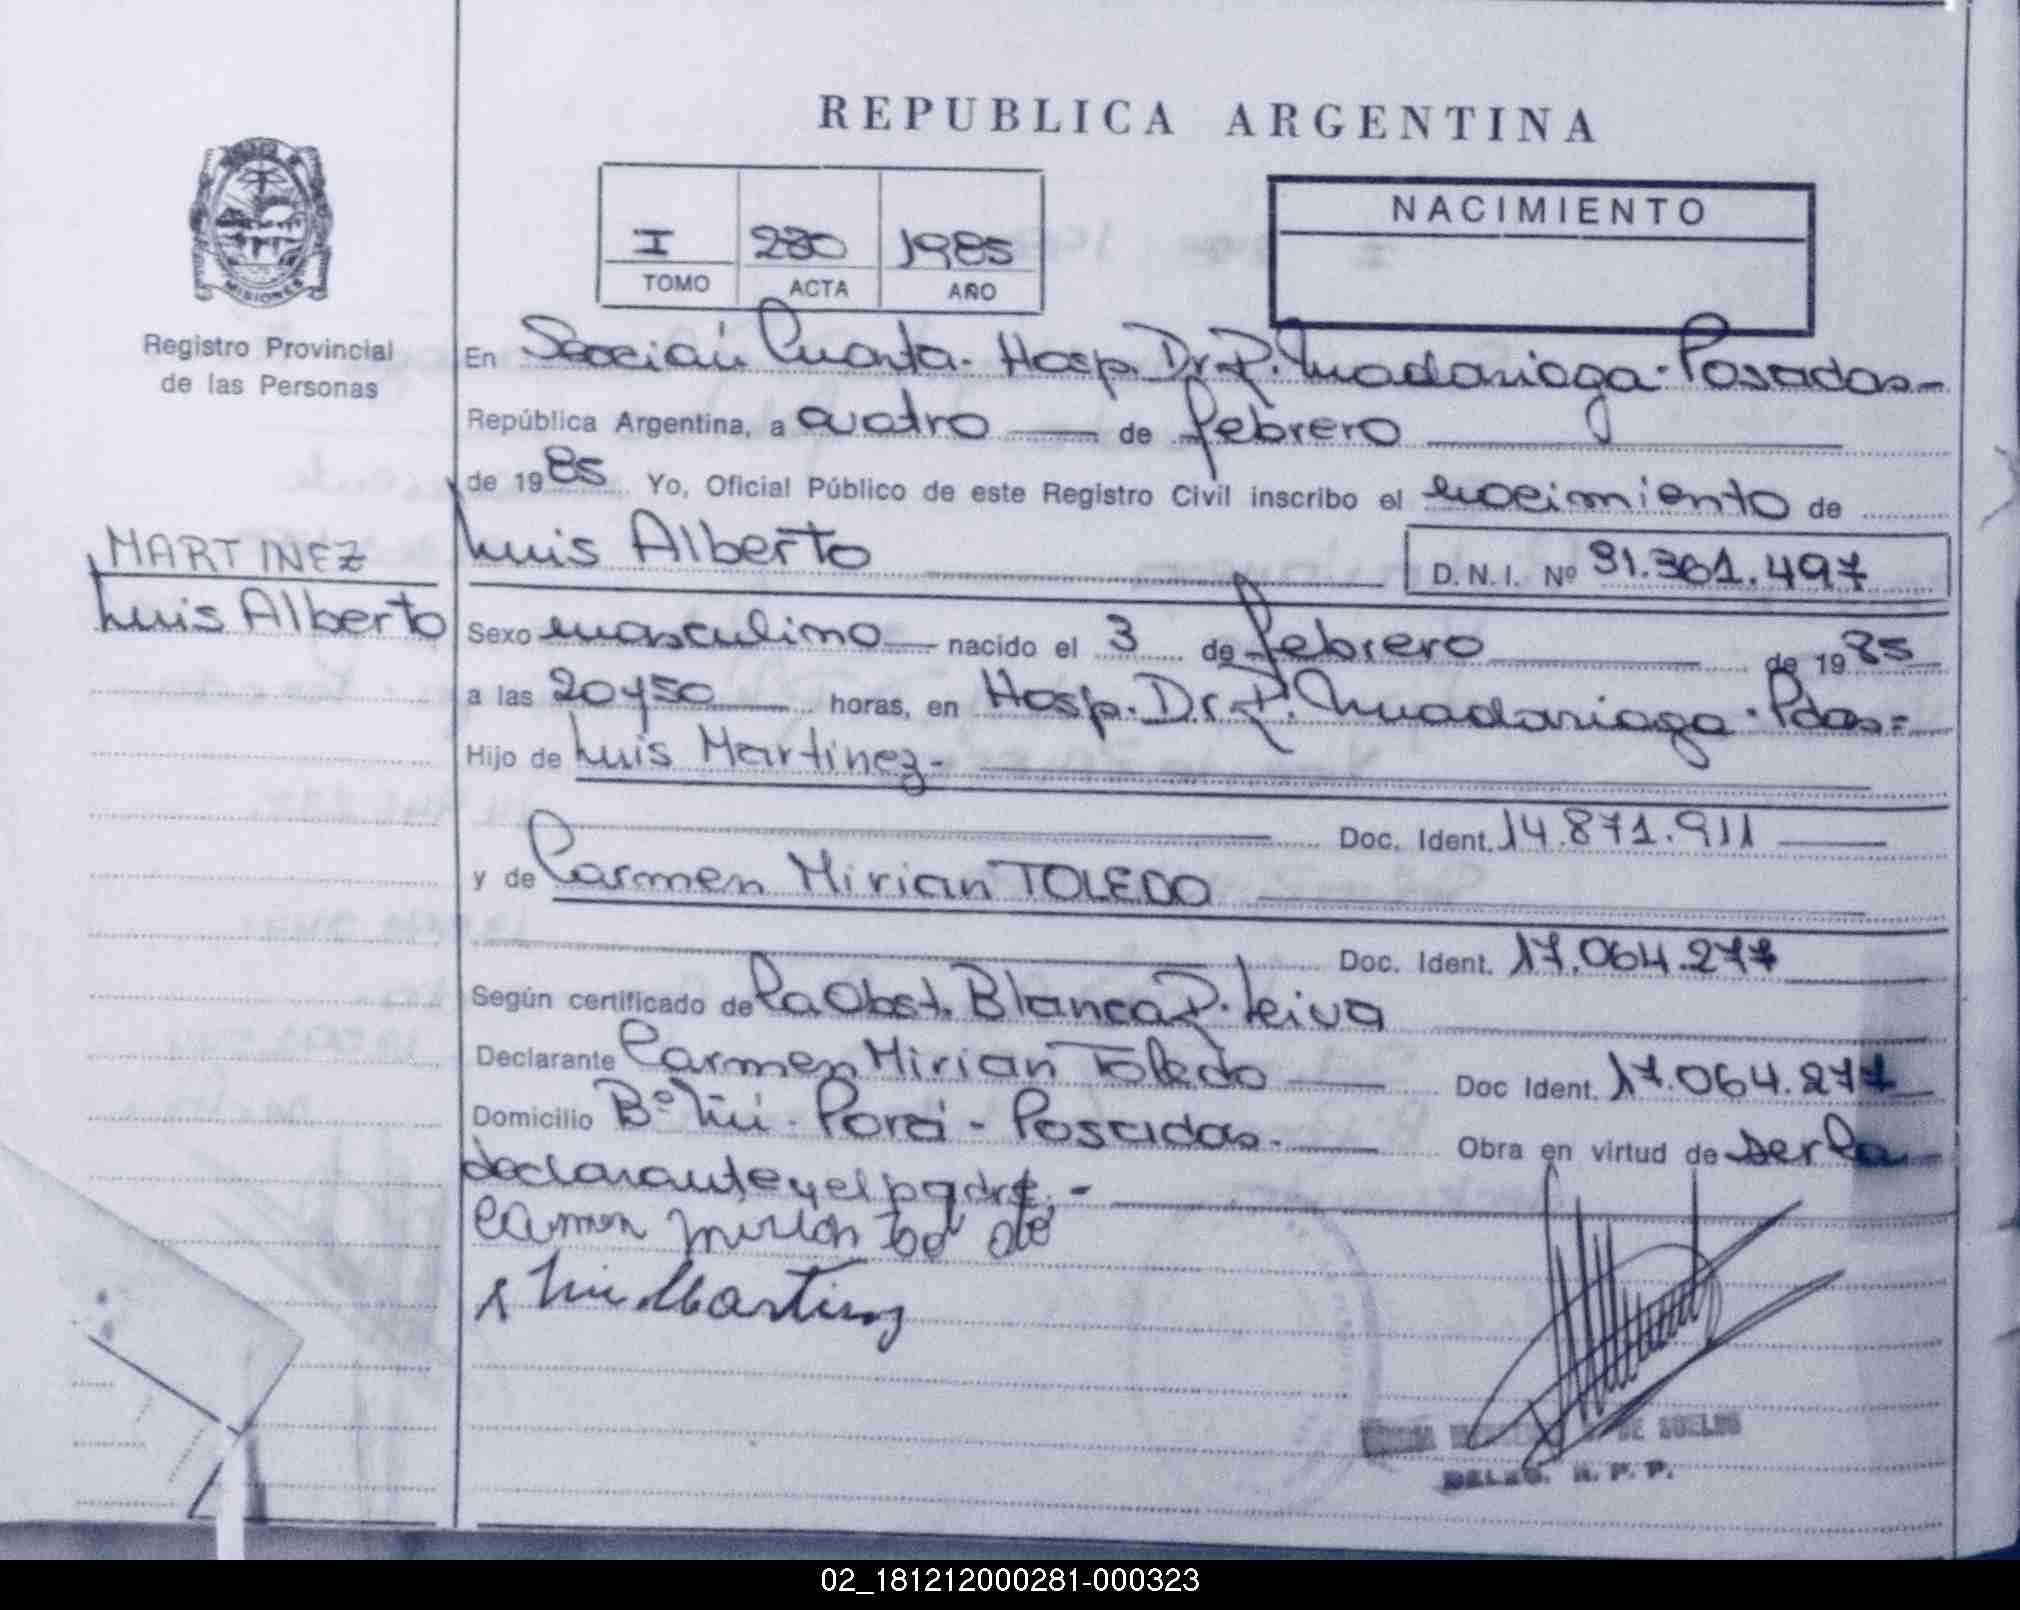 REPUBLICA ARGENTINA
MISIONES
Registro Provincial
de las Personas
I 280 1985
TOMO ACTA AÑO
NACIMIENTO
En Sección Cuarta - Hosp. Dr. R. Madariaga - Posadas -
República Argentina, a cuatro de febrero
de 1985 Yo, Oficial Público de este Registro Civil inscribo el nacimiento de
MARTINEZ
Luis Alberto
Luis Alberto D.N.I. Nº 31.361.497
Sexo masculino nacido el 3 de febrero de 1985
a las 20 y 50 horas, en Hosp. Dr. R. Madariaga - Pdas =
Hijo de Luis Martinez -
Doc. Ident. 14.871.911
y de Carmen Mirian TOLEDO
Doc. Ident. 17.064.277
Según certificado de la Obst. Blanca R. Leiva
Declarante Carmen Mirian Toledo Doc Ident. 17.064.277
Domicilio Bº Ñú - Porá - Posadas - Obra en virtud de ser la
declarante y el padre. -
Luis Martinez
DE SUELDO
DELEG. R. P. P.
02_181212000281-000323